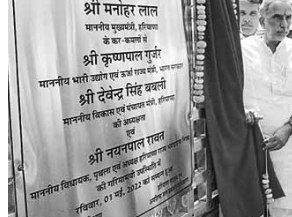 श्री मनोहर लाल
माननीय मुख्यमंत्री, हरियाणा
के कर-कमलों से
श्री कृष्णपाल गुर्जर
माननीय भारी उद्योग एवं ऊर्जा राज्य मंत्री, भारत सरकार
श्री देवेन्द्र सिंह बबली
माननीय विकास एवं पंचायत मंत्री, हरियाणा
की अध्यक्षता
एवं
श्री नयनपाल रावत
माननीय विधायक, पृथला एवं अध्यक्ष हरियाणा राज्य
की गरिमामयी उपस्थिति में
रविवार, 01 मई, 2022 को सम्पन्न हुआ